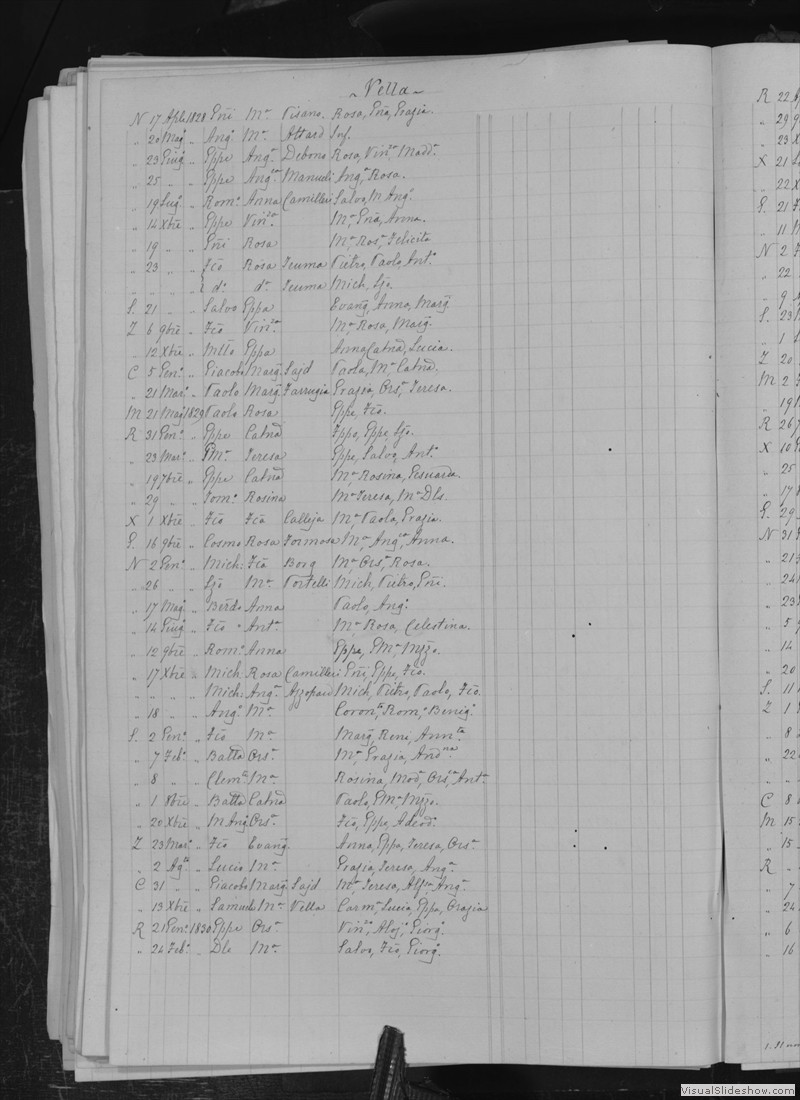 ~ Vella ~
N 17 Aple 1828 Eñi Mª Pisano. Rosa, Eña, Grazia.
" 20 Magº " Angº Mª Attard Inf.
" 23 Giugº " Eppe Angª Debono Rosa, Vinza Maddª
" 25 " " Eppe Angca Manueli Angª Rosa.
" 19 Lugº " Romº Anna Camilleri Salvo, M Angº
" 14 Xbre " Eppe Vinza Mª Eña, Anna.
" 19 " " Eñi Rosa Mª Rosª Felicita
" 23 " " Fco Rosa Zeuma Pietro, Paolo, Antº
" " " " dº dª Zeuma Mich, Ljo.
S. 21 " " Salvo Eppa Evang, Anna, Marg
Z 6 9bre " Fco Vinza Mª Rosa, Marg.
" 12 Xbre " Mtto Eppa Anna Catna, Lucia.
C 5 Genº " Giacobo Marg. Sajd Paola, Mª Catna.
" 21 Marº " Paolo Marg Farrugia Grazia, Orsª Teresa.
M 21 Magº 1829 Paolo Rosa Eppe, Fco.
R 31 Genº " Eppe Catna Fppo, Eppe, Ljo.
" 23 Marº " GMª Teresa Eppe, Salvo, Antº
" 19 7bre " Eppe Catna Mª Rosina, Gesuarda.
" 29 " " Domº Rosina Mª Teresa, Mª Dls.
X 1 Xbre " Fco Fca Calleja Mª Paola, Grazia.
G. 16 9bre " Cosmo Rosa Formosa Mª, Angca, Anna.
N 2 Genº " Mich. Fca Borg Mª Orsª, Rosa.
" 26 " " Ljo Mª Portelli Mich, Pietro, Eñi.
" 17 Magº " Berdo Anna Paolo, Angº
" 14 Giugº " Fco Antª Mª Rosa, Celestina.
" 12 9bre " Romº Anna Eppa, GMª Nzzo.
" 17 Xbre " Mich. Rosa Camilleri Eñi, Eppe, Fco.
" " " " Mich. Angª Azzopard Mich, Pietro, Paolo, Fco.
" 18 " " Angº Mª Coronta, Romº Benigº
S. 2 Genº " Fco Mª Marg, Reni, Annta
" 7 Febº " Batta Orsª Mª, Grazia, Andna
" 8 " " Clemte Mª Rosina, Mod, Orsª Antª
" 1 8bre " Batta Catna Paolo, GMª Nzzo.
" 20 Xbre " M Ang. Orsª Fco, Eppe, Adeodº
Z 23 Marº " Fco Evang. Anna, Eppa, Teresa, Orsª
" 2 Agto " Lucio Mª Grazia, Teresa, Angª
C 31 " " Giacobo Marg. Sajd Mª Teresa, Angª
" 13 Xbre " Samuele Mª Vella Carmª, Lucia, Eppa, Grazia
R 21 Genº 1830 Eppe Orsª Vinzo, Alojº, Giorgº
" 26 Febº " Dlo Mª Salvo, Fco, Giorgº
R 22
" 23
X 21
" 22
G. 21
" 11
N 2
" 22
" 9
S. 23
" 1
Z 20
M 2
" 19
R 26
X 10
" 25
" 17
G. 29
N 31
" 21
" 24
" 23
" 5
" 14
" 20
S. 11
Z 1
" 8
" 22
C 8
M 15
" 15
R "
" 7
" 24
" 6
" 16
VisualSlideshow.com